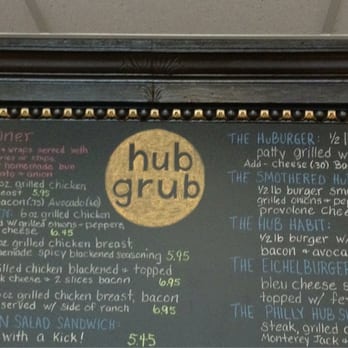 hub
grub
+ wraps served with
homemade bun
grilled chicken
5.95
(.75) Avocado (.60)
6 oz grilled chicken
w/ grilled onions + peppers,
cheese 6.45
oz grilled chicken breast,
spicy blackened seasoning 5.95
grilled chicken blackened + topped
cheese + 2 slices bacon 6.95
oz grilled chicken breast, bacon
served w/ side of ranch 6.95
SALAD SANDWICH:
with a Kick! 5.45
THE HUBURGER: 1/2 l
patty grilled w
Add- cheese (.30) Ba
THE SMOTHERED HU
1/2 lb burger sm
grilled onions + pep
provolone chee
THE HUB HABIT:
1/2 lb burger w/
bacon + avoca
THE EICHELBURGER
bleu cheese s
topped w/ fe
THE PHILLY HUB S
steak, grilled o
Monterey Jack +